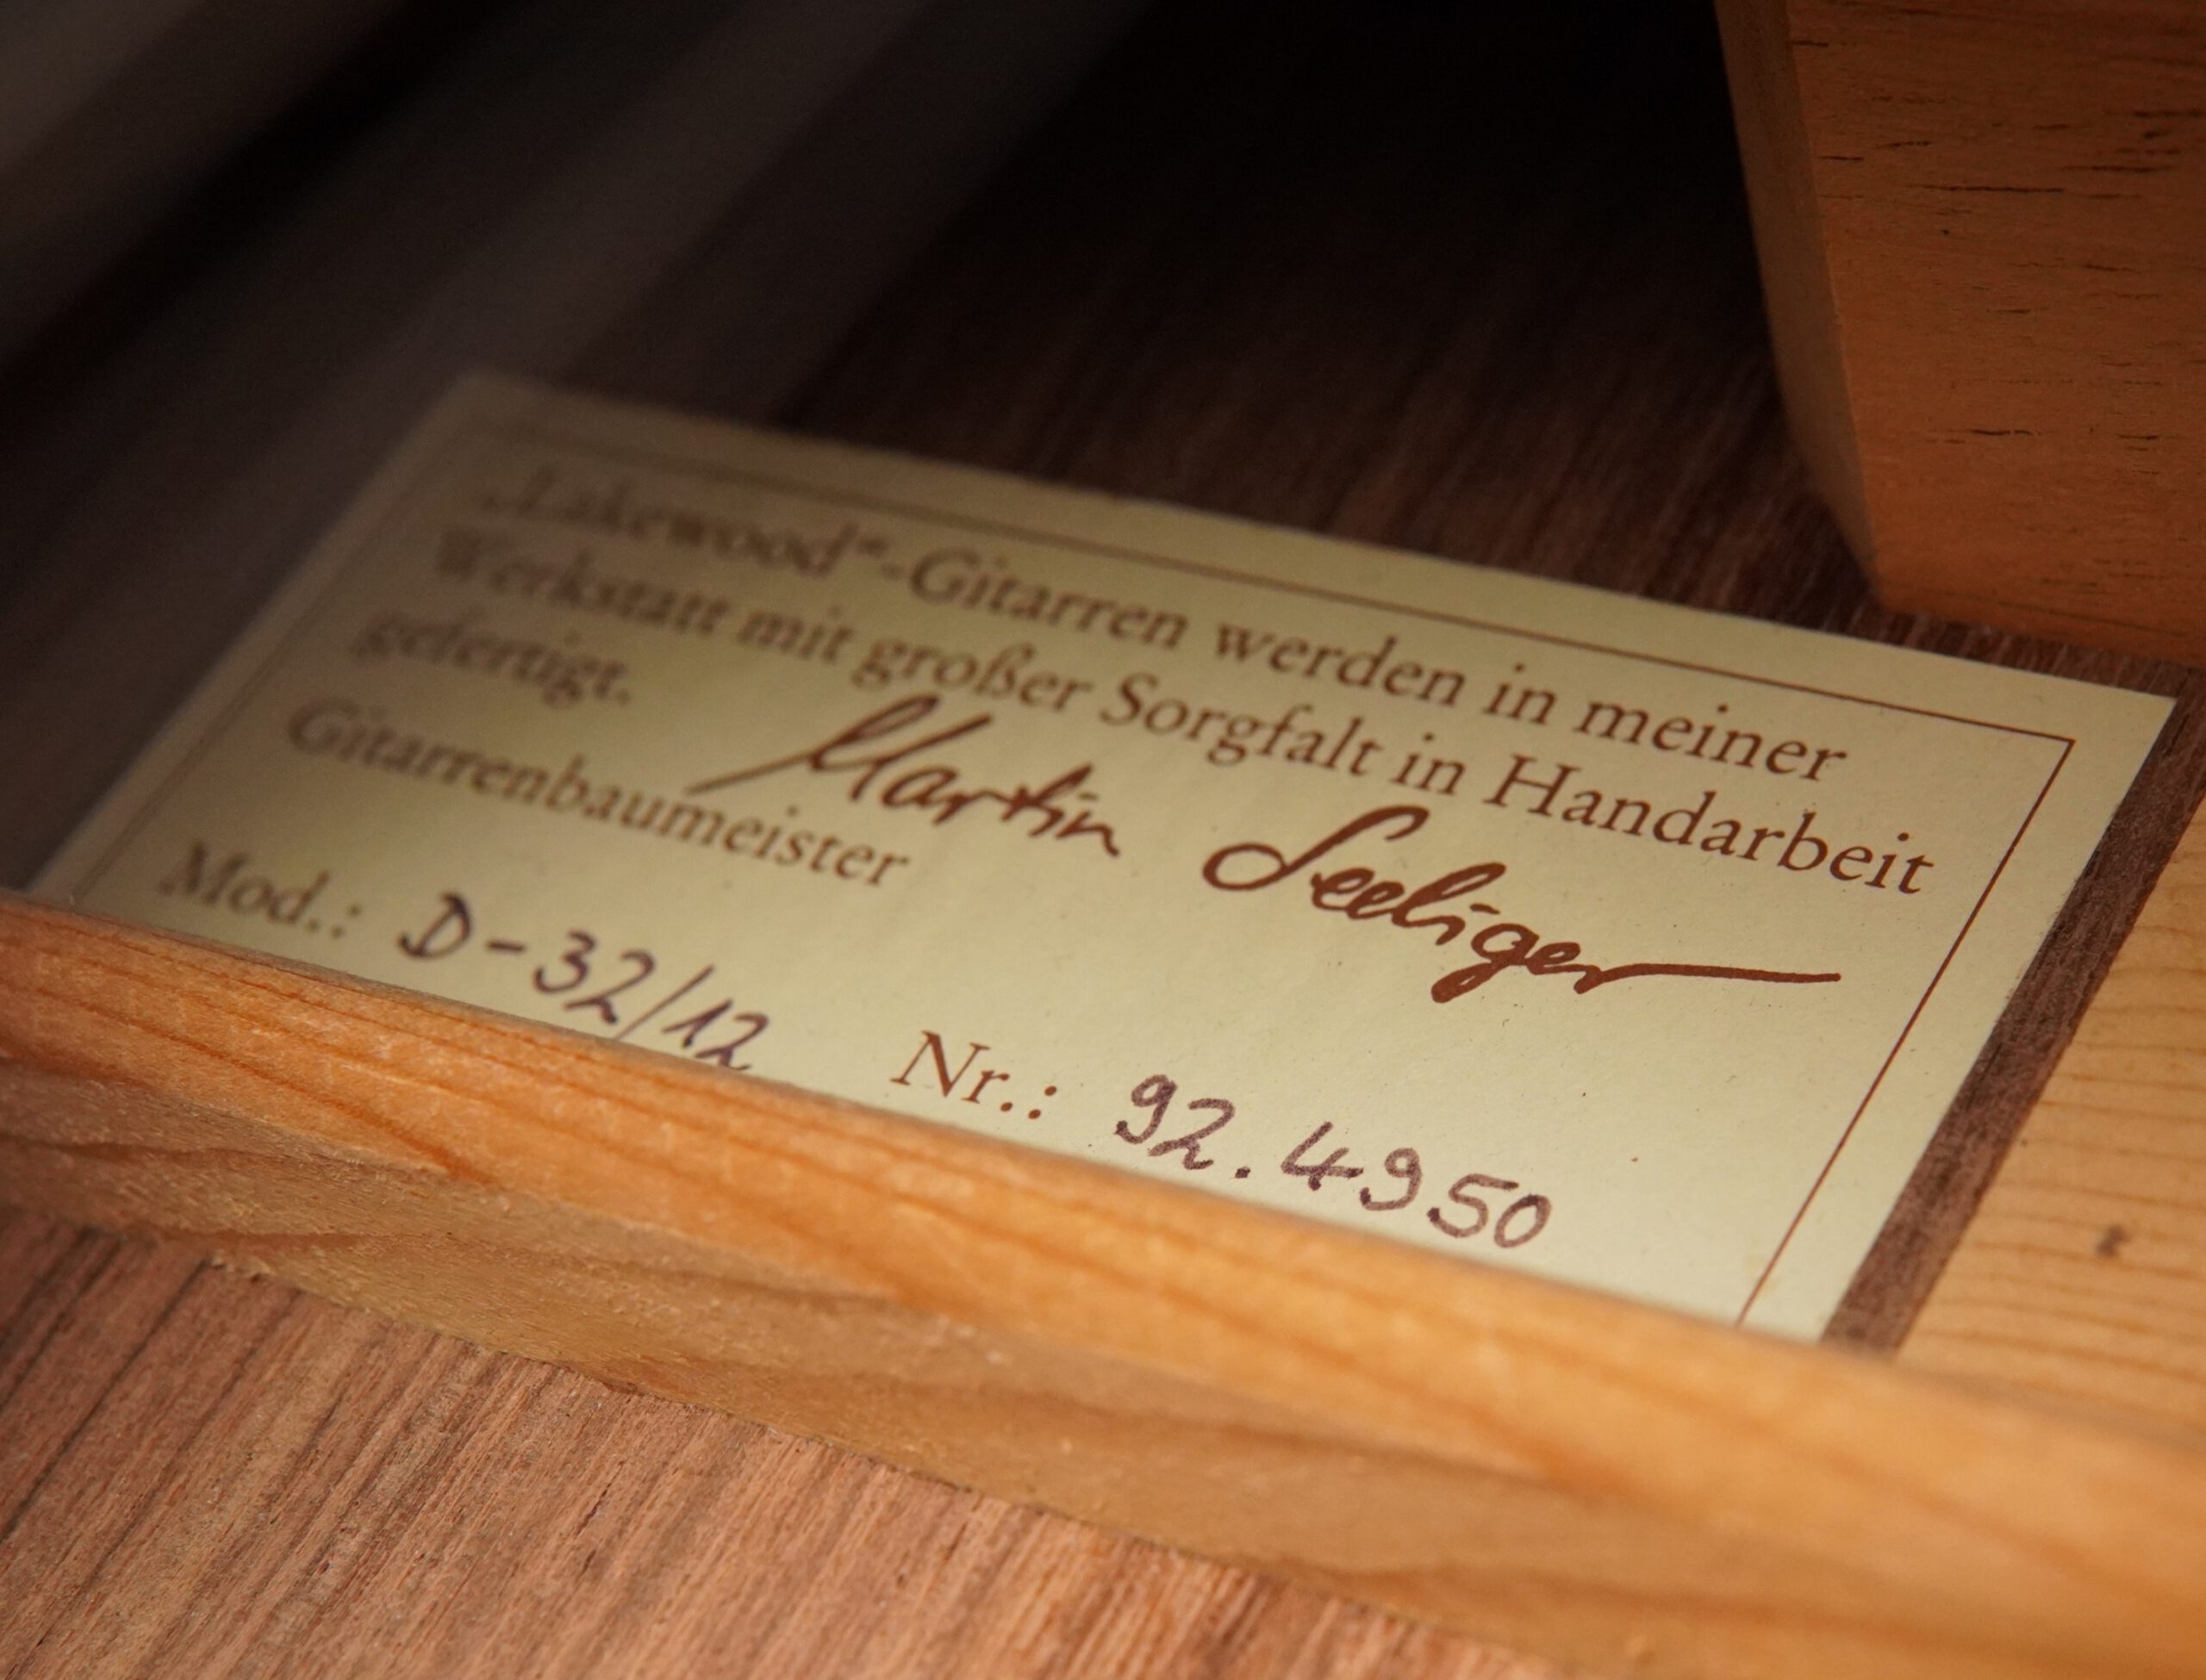 „Lakewood“-Gitarren werden in meiner
Werkstatt mit großer Sorgfalt in Handarbeit
gefertigt.
Martin Seeliger
Gitarrenbaumeister
Mod.: D-32/12 Nr.: 92.4950